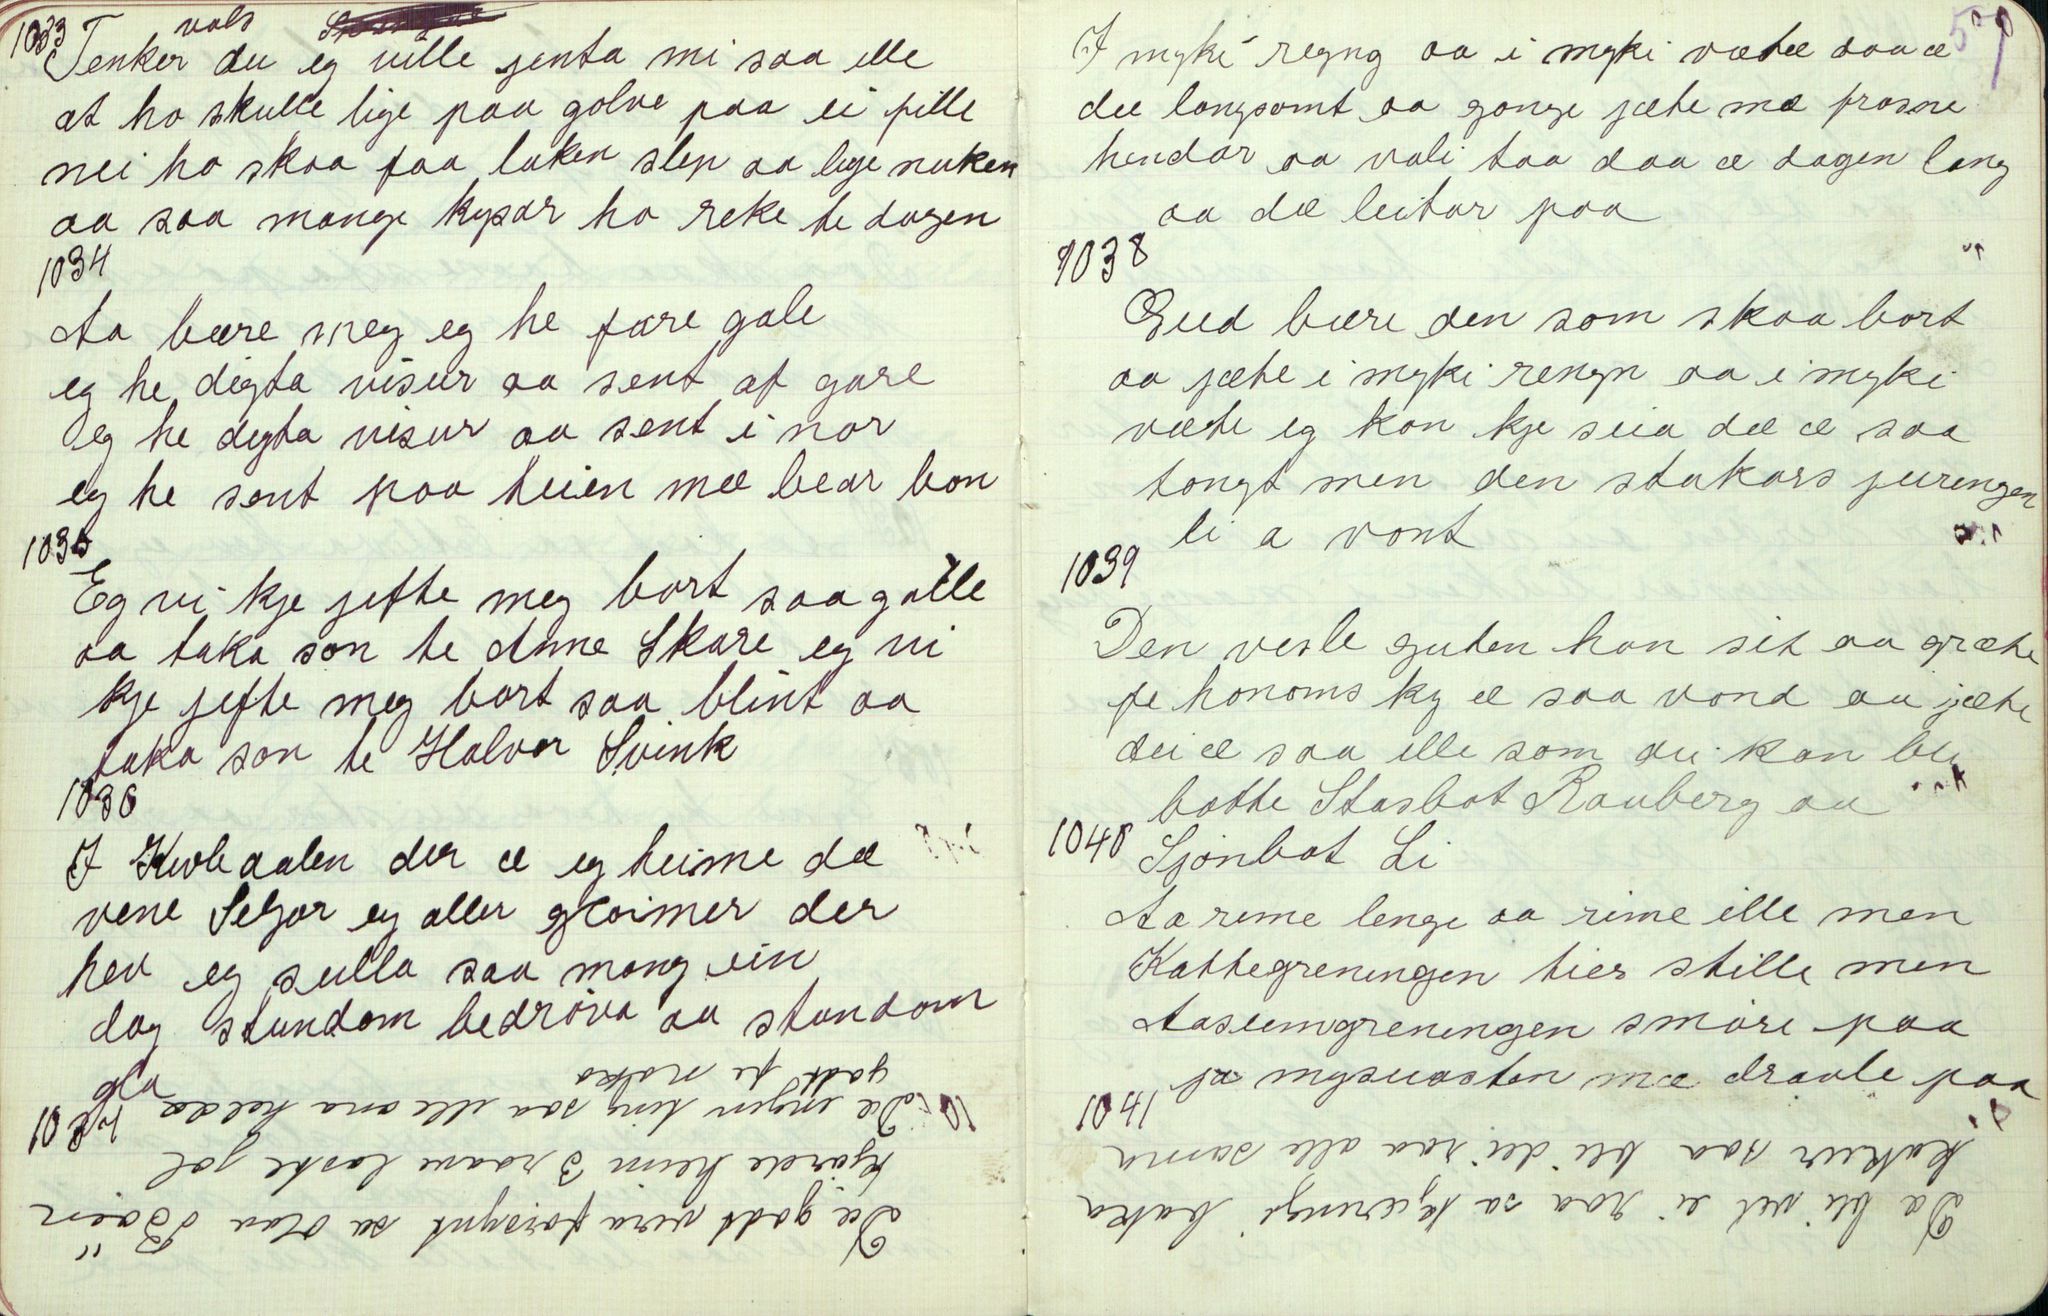 1033 vals
Tenker du eg ville jenta mi saa ille
at ho skulle lige paa golve paa ei fille
nei ho skaa faa laken slep aa lige naken
aa saa mange kysar ho reke te dagen
1034
Aa bære meg eg he fare gale
eg he digta visur aa sent af gare
eg he digta visur aa sent i nor
eg he sent paa heien mæ bear bon
1035
Eg vi kje jefte meg bort saa galle
aa taka son te Anne Skare eg vi
kje jefte meg bort saa blint aa
taka son te Halvor Svink
1036
I Kivledalen der æ eg heime dæ
vene Seljor eg aller gloimer der
hev eg sulla saa mang ein
dag stundom bedrøva aa stundom
gla
1037
Dæ godt vera forsynt sa Olav Bøen
kjørde heim 3 raave laste jol
Dæ ingen ting saa ille ana helda
godt fe noko
57
I myki regng aa i myki vætæ daa æ
dæ langsomt aa gange jæte mæ frosne
hendar aa vali taa daa æ dagen lang
aa dæ leitar paa
1038
Gud bære den som skaa bort
aa jæte i myki rengn aa i myki
væte eg kan kje seia dæ æ saa
tongt men den stakars jurengen
li a vont
1039
Den vesle guten han sit aa græte
fe honoms ky æ saa vond aa jæte
dei æ saa ille som dei kan bli
batte Stasbot Rauberg aa
Sjonbot Li
1040
Aa reme lenge aa rime ille men
Kattegreningen tier stille men
Aasumgreningen smøre paa
ja mysuosten mæ dravle paa
1041
Dæ bli vel ei raa sa kjæringi baka
kakur saa bli dei raa alle sama